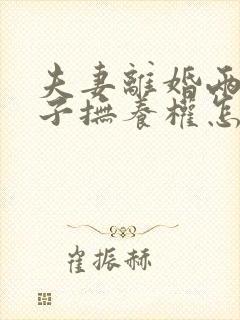 夫妻離婚兩
子撫養權怎
崔振赫